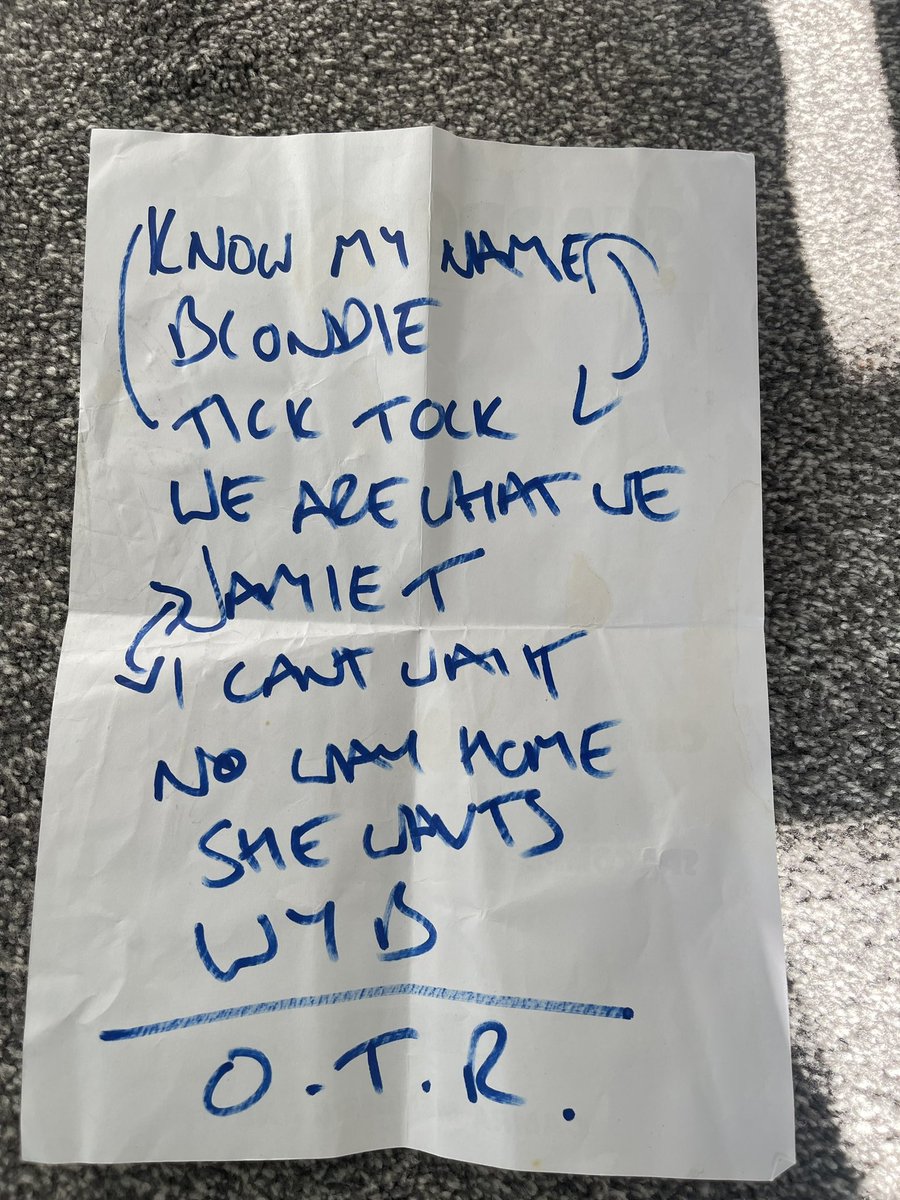 KNOW MY NAME
BLONDIE
TICK TOCK
WE ARE WHAT WE
JAMIE T
I CANT WAIT
NO WAY HOME
SHE WANTS
WYB
O.T.R.